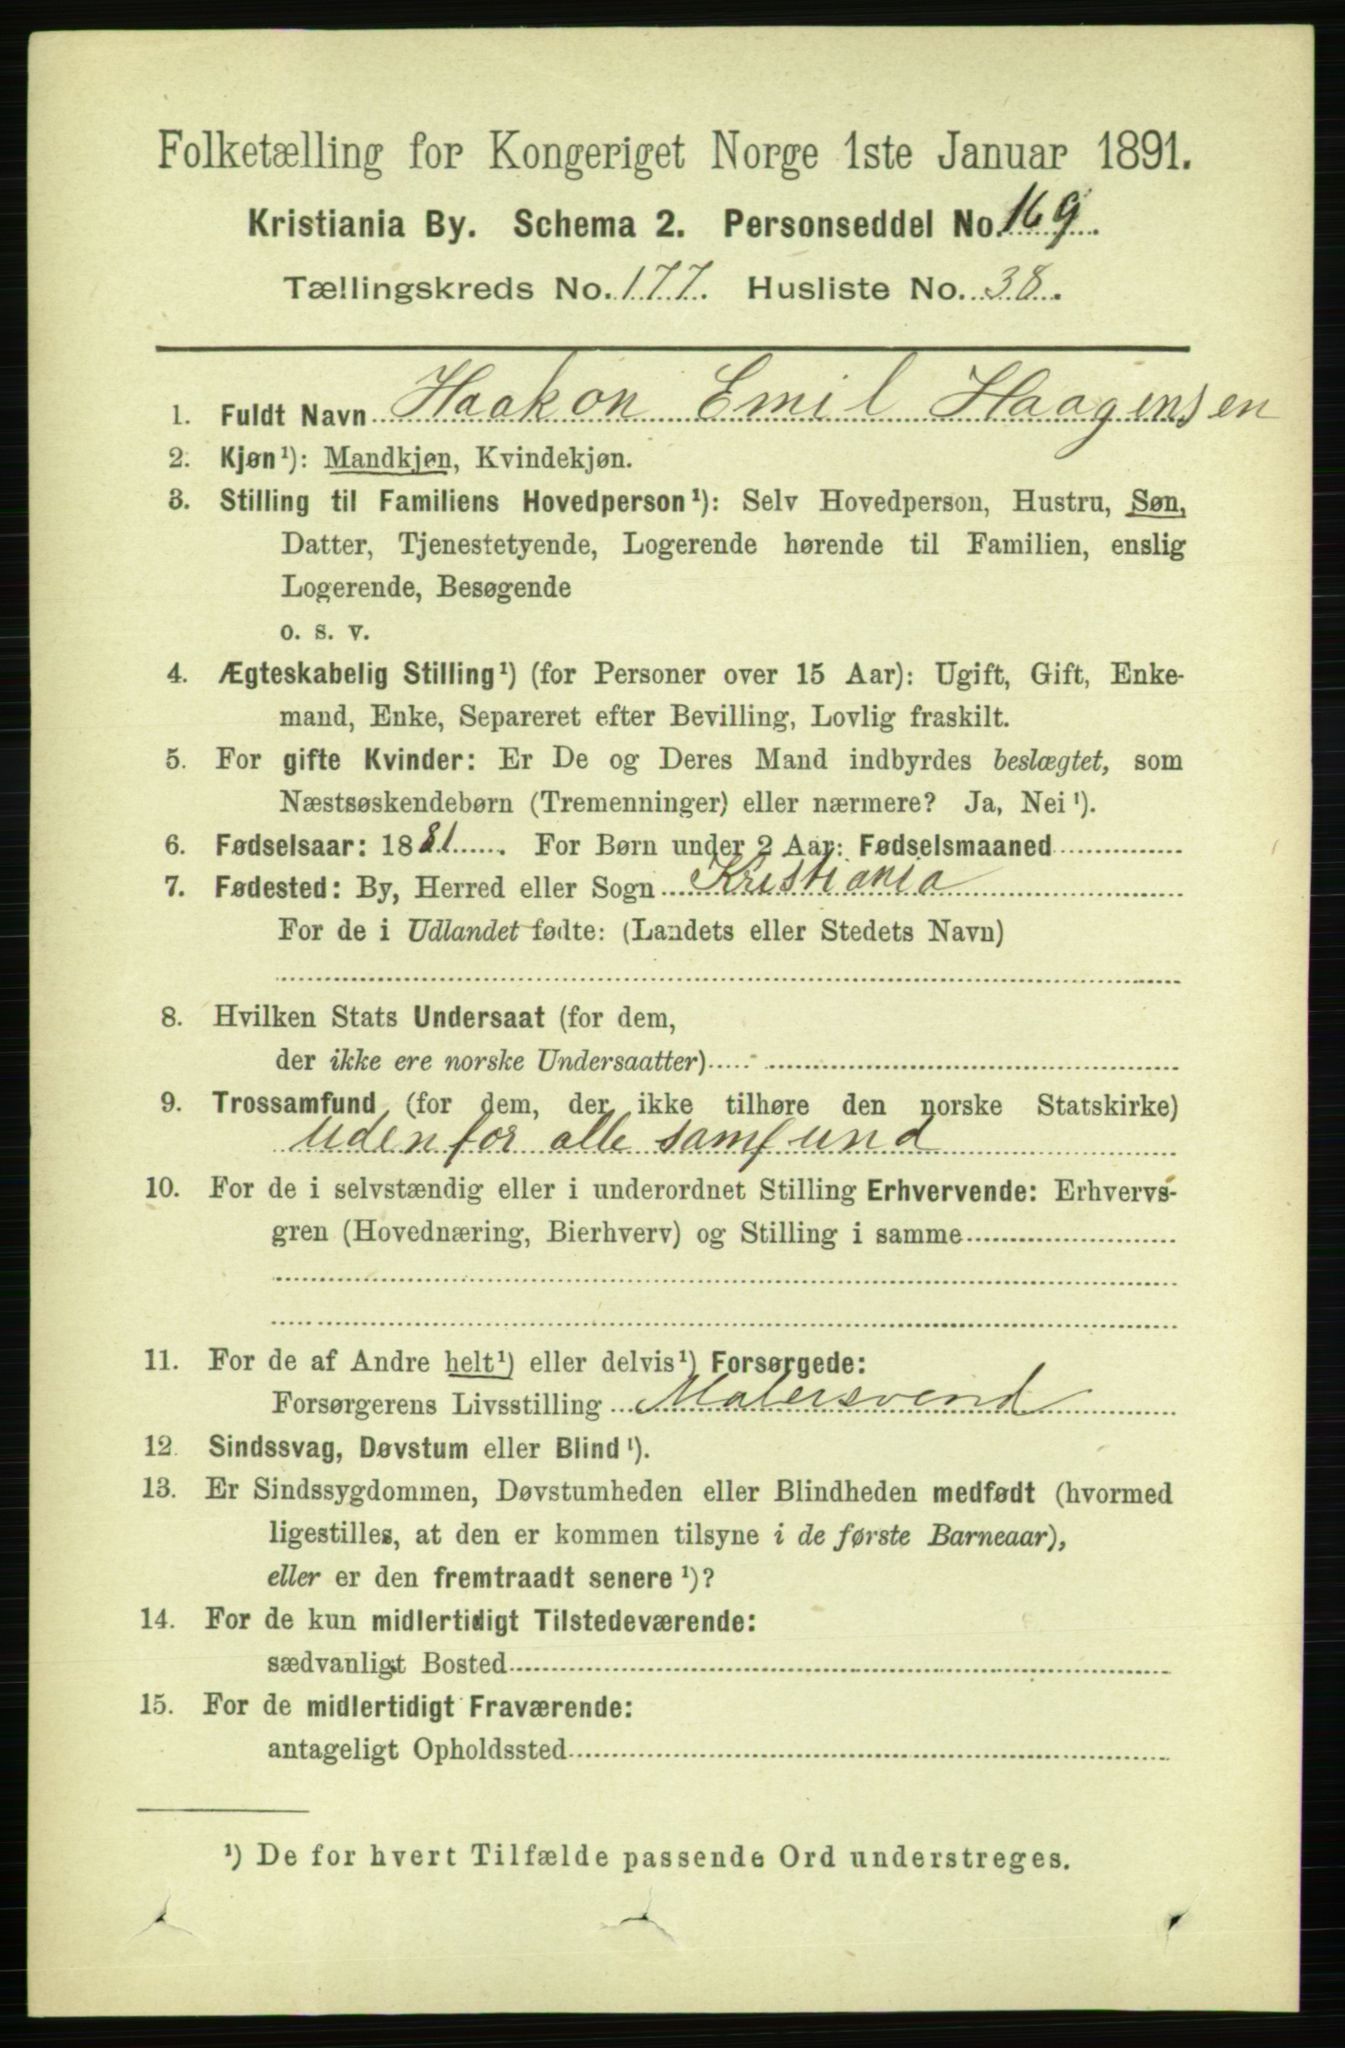 Folketælling for Kongeriget Norge 1ste Januar 1891.
Kristiania By. Schema 2. Personseddel No. 169.
Tællingskreds No. 177. Husliste No. 38.
1. Fuldt Navn Haakon Emil Haagensen
2. Kjøn¹): Mandkjøn, Kvindekjøn.
3. Stilling til Familiens Hovedperson¹): Selv Hovedperson, Hustru, Søn,
Datter, Tjenestetyende, Logerende hørende til Familien, enslig
Logerende, Besøgende
o. s. v.
4. Ægteskabelig Stilling¹) (for Personer over 15 Aar): Ugift, Gift, Enke-
mand, Enke, Separeret efter Bevilling, Lovlig fraskilt.
5. For gifte Kvinder: Er De og Deres Mand indbyrdes beslægtet, som
Næstsøskendebørn (Tremenninger) eller nærmere? Ja, Nei¹).
6. Fødselsaar: 1881. For Børn under 2 Aar: Fødselsmaaned
7. Fødested: By, Herred eller Sogn Kristiania
For de i Udlandet fødte: (Landets eller Stedets Navn)
8. Hvilken Stats Undersaat (for dem,
der ikke ere norske Undersaatter)
9. Trossamfund (for dem, der ikke tilhøre den norske Statskirke)
udenfor alle samfund
10. For de i selvstændig eller i underordnet Stilling Erhvervende: Erhvervs-
gren (Hovednæring, Bierhverv) og Stilling i samme
11. For de af Andre helt¹) eller delvis¹) Forsørgede:
Forsørgerens Livsstilling Malersvend
12. Sindssvag, Døvstum eller Blind¹).
13. Er Sindssygdommen, Døvstumheden eller Blindheden medfødt (hvormed
ligestilles, at den er kommen tilsyne i de første Barneaar),
eller er den fremtraadt senere¹)?
14. For de kun midlertidigt Tilstedeværende:
sædvanligt Bosted
15. For de midlertidigt Fraværende:
antageligt Opholdssted
¹) De for hvert Tilfælde passende Ord understreges.